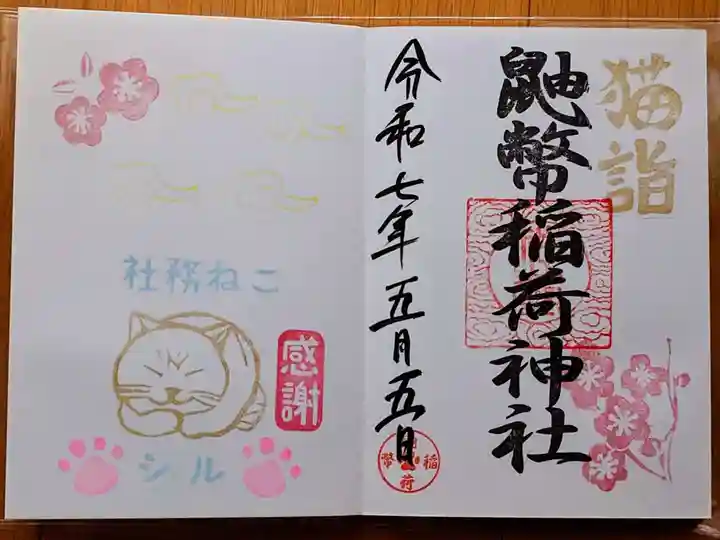 猫詣
鼬幣稲荷神社
令和七年五月五日
社務ねこ
感謝
シル